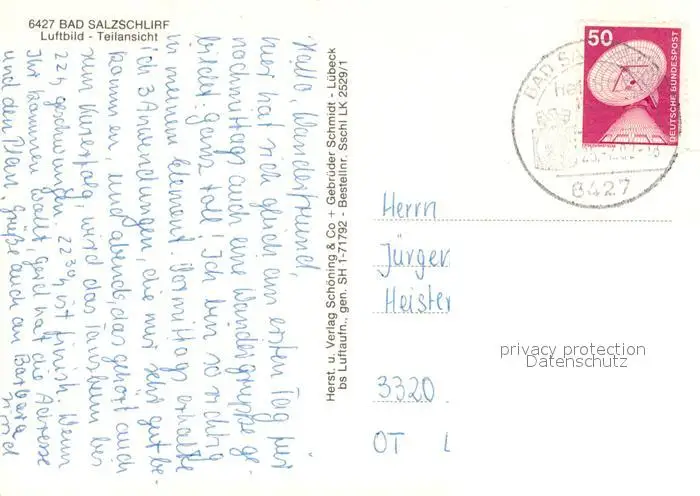 6427 BAD SALZSCHLIRF
Luftbild - Teilansicht
Hallo, Wanderfreund,
hier hat sich gleich am ersten Tag mir
nachmittags auch eine Wandergruppe ge-
bildet. ganz toll! Ich bin so richtig
in meinem Element. Vormittags erhalte
ich 3 Anwendungen, die mir sehr gut be-
kommen, und abends, das gehört auch
zum Kurerfolg, wird das Tanzbein bis
22 h geschwungen. 22 30 h ist finish. Wenn
Ihr kommen wollt, Gerd hat die Adresse
und den Plan. Grüße auch an Barbara
Herst. u. Verlag Schöning & Co + Gebrüder Schmidt - Lübeck
bs Luftaufn., gen. SH 1-71792 - Bestellnr. Sschl LK 2529/1
50
DEUTSCHE BUNDESPOST
BAD SA
6427
Herrn
Jürgen
Heister
3320
OT L
privacy protection
Datenschutz